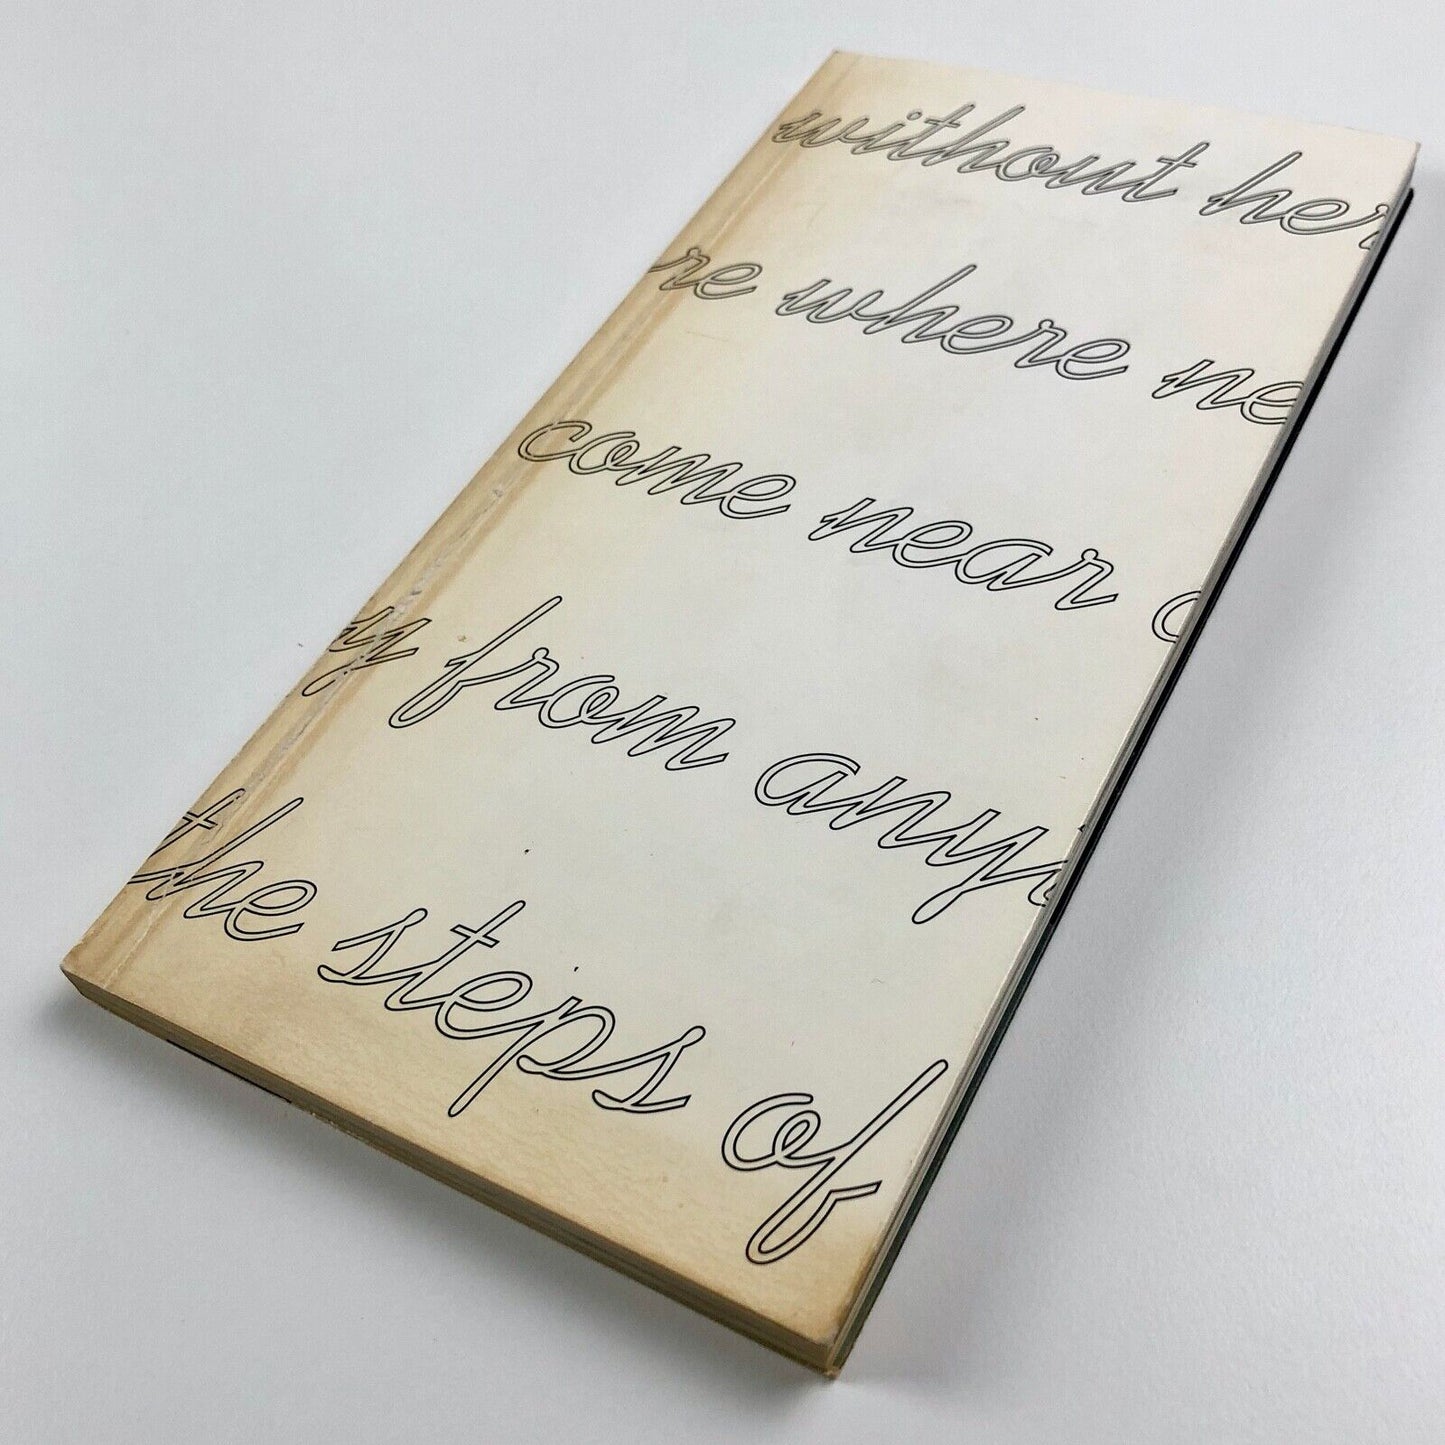 without her
re where ne
come near
y from any
the steps of